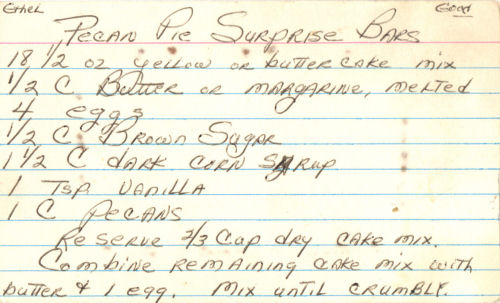 Ethel Good
Pecan Pie Surprise Bars
18 1/2 oz yellow or butter cake mix
1/2 C Butter or margarine, melted
4 eggs
1/2 C Brown Sugar
1 1/2 C dark corn syrup
1 Tsp Vanilla
1 C Pecans
Reserve 2/3 Cup dry cake mix.
Combine remaining cake mix with
butter & 1 egg. Mix until crumbly.